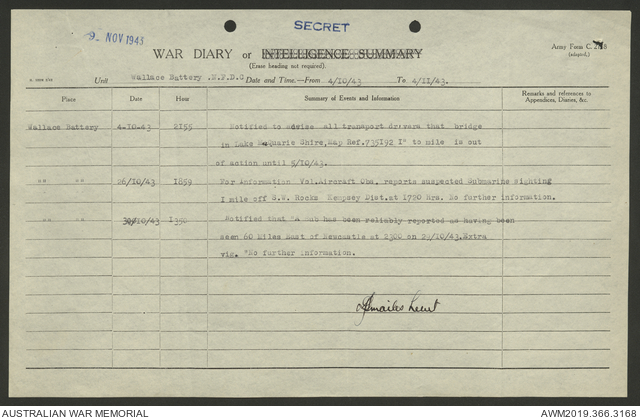 9- NOV 1943
SECRET
WAR DIARY or INTELLIGENCE SUMMARY
(Erase heading not required).
Army Form C. 2118
(adapted.)
Unit Wallace Battery .N.F.D.C Date and Time.—From 4/10/43 To 4/11/43.
Place Date Hour Summary of Events and Information Remarks and references to Appendices, Diaries, &c.
Wallace Battery 4-10-43 2155 Notified to advise all transport drivers that bridge
in Lake Macquarie Shire, Map Ref.735192 I" to mile is out
of action until 5/10/43.
" " " " 26/10/43 1859 For Information Vol.Aircraft Obs, reports suspected Submarine sighting
I mile off S.W. Rocks Kempsey Dist.at 1720 hrs. No further information.
" " " " 30/10/43 I350 Notified that "A Sub has been reliably reported as having been
seen 60 Miles East of Newcastle at 2300 on 29/10/43.Extra
vig. "No further information.
Lieut
AUSTRALIAN WAR MEMORIAL
AWM2019.366.3168